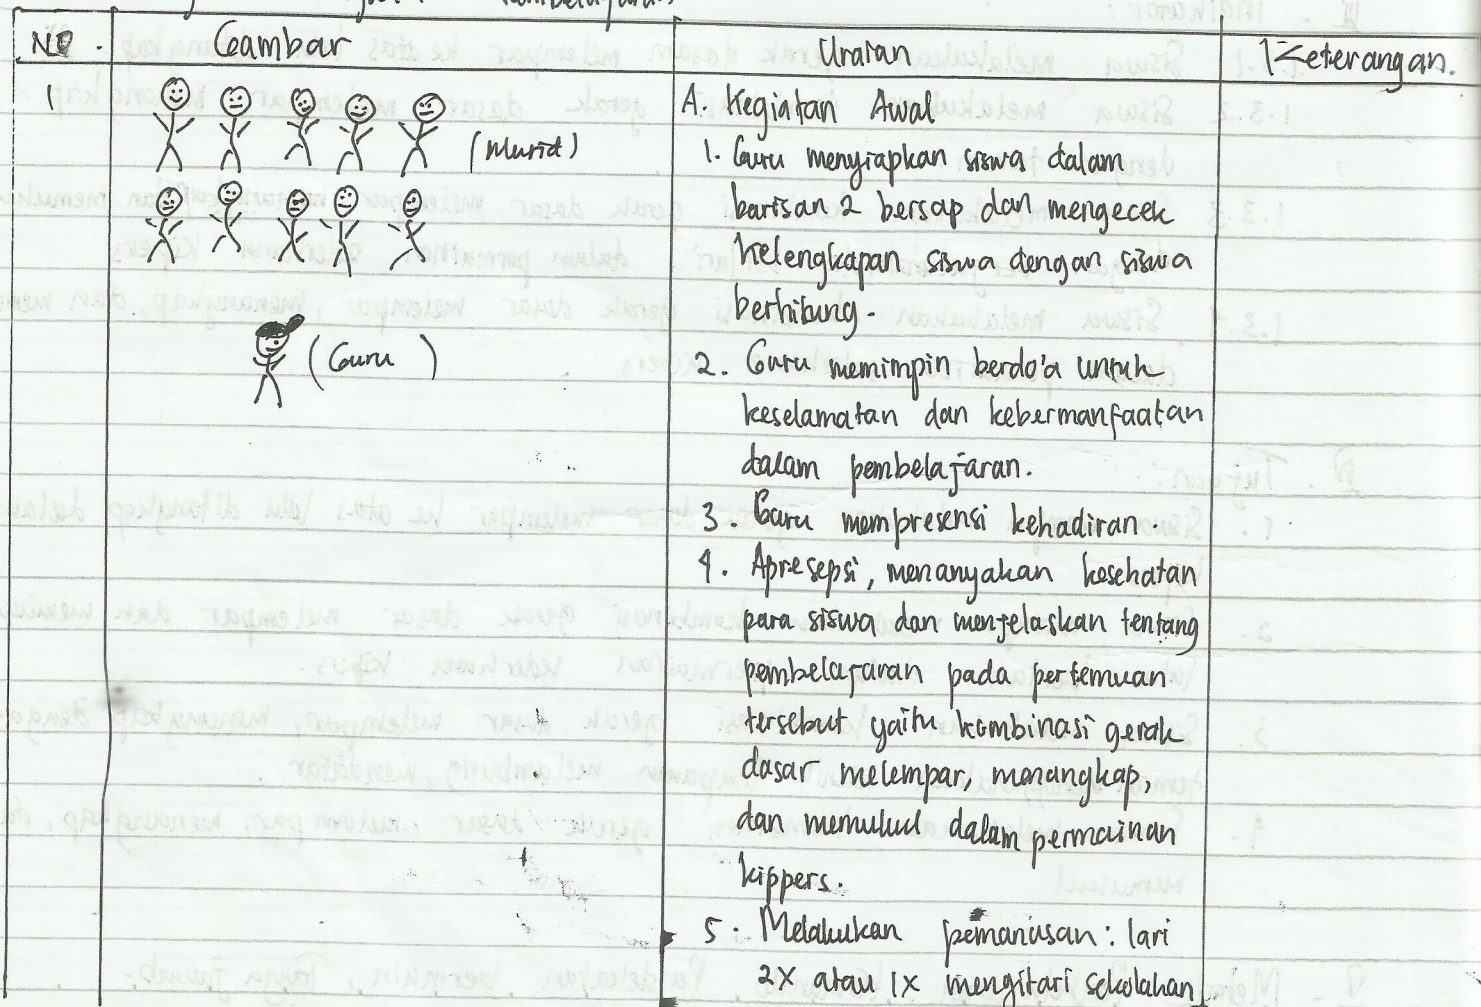 No. Gambar Uraian Keterangan.
1
(Murid)
(Guru)
A. Kegiatan Awal
1. Guru menyiapkan siswa dalam
barisan 2 bersap dan mengecek
kelengkapan siswa dengan siswa
berhitung.
2. Guru memimpin berdo'a untuk
keselamatan dan kebermanfaatan
dalam pembelajaran.
3. Guru mempresensi kehadiran.
4. Apresepsi, menanyakan kesehatan
para siswa dan menjelaskan tentang
pembelajaran pada pertemuan
tersebut yaitu kombinasi gerak
dasar melempar, menangkap,
dan memukul dalam permainan
kippers.
5. Melakukan pemanasan: lari
2x atau 1x mengitari sekolahan